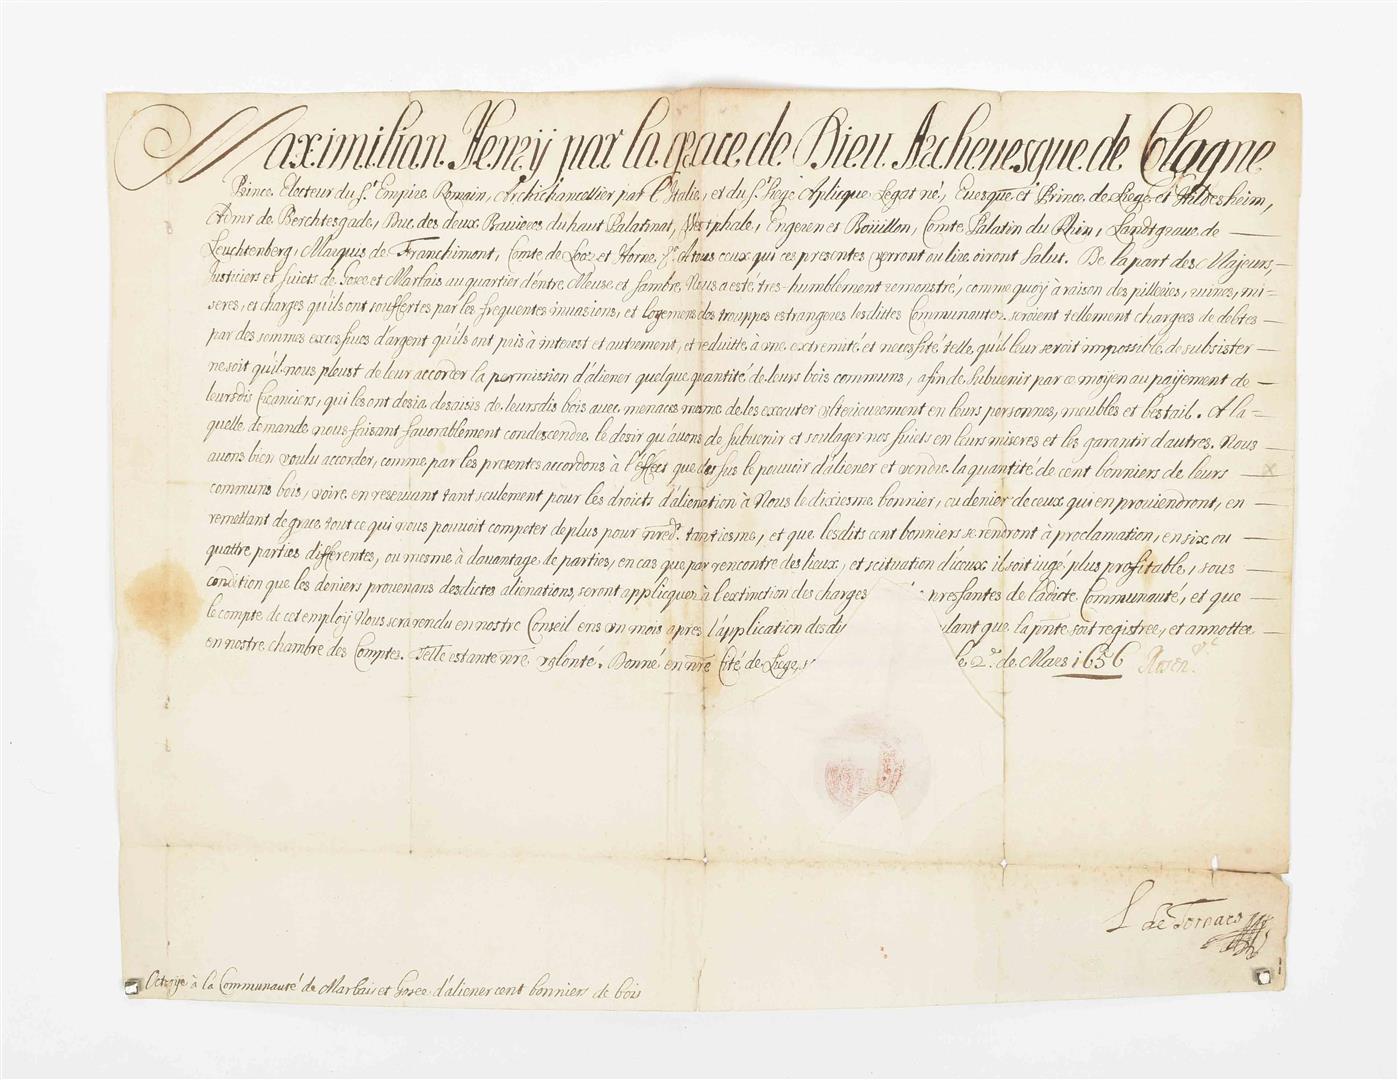 Maximilian Henrÿ par la grace de Dieu Archeuesque de Cologne
Prince Electeur du St Empire Romain, Archichancellier par l'Italie, et du St Siege Aplique Legat né, Euesque et Prince de Liege et Hildesheim,
Admr de Berchtesgade, Duc des deux Bauieres du haut Palatinat, Westphale, Engeren et Boüillon, Comte Palatin du Rhin, Landtgraue de
Leuchtenberg, Marquis de Franchimont, Comte de Looz et Horne &c. A tous ceux qui ces presentes verront ou lire oiront Salut. De la part des Majeurs,
Justiciers et suiets de Gosee et Marbais au quartier d'entre Meuse et Sambre Nous a esté tres-humblement remonstré, comme quoÿ à raison des pilleries, ruines, mi=
seres, et charges qu'ils ont souffertes par les frequentes inuasions, et logemens des trouppes estrangeres lesdittes Communautez seroient tellement chargees de debtes
par des sommes excessiues d'argent qu'ils ont pris à interest et autrement, et reduitte à vne extremité et necessité telle, qu'il leur seroit impossible de subsister
ne soit qu'il nous pleust de leur accorder la permission d'aliener quelque quantité de leurs bois communs, afin de subuenir par ce moÿen au paÿement de
leursdis creanciers, qui les ont desia desaisis de leursdis bois auec menaces mesme de les executer vlterieurement en leurs personnes, meubles et bestail. A la=
quelle demande nous faisant fauorablement condescendre le desir qu'auons de subuenir et soulager nos suiets en leurs miseres et les garantir d'autres. Nous
auons bien voulu accorder, comme par les presentes accordons à l'effect que des sus le pouuoir d'aliener et vendre la quantité de cent bonniers de leurs x
communs bois, voire en reseruant tant seulement pour les droicts d'alienation à Nous le dixiesme bonnier, ou denier de ceux qui en prouiendront, en
remettant de grace tout ce qui nous pouuoit competer de plus pour nred. tantiesme, et que lesdits cent bonniers se vendront à proclamation, en six ou
quattre parties differentes, ou mesme à dauantage de parties, en cas que par rencontre des lieux, et scituation d'iceux il soit iugé plus profitable, sous
condition que les deniers prouenans desdictes alienations, seront applicquez à l'extinction des charges pressantes de ladicte Communauté, et que
le compte de cet employ Nous sera rendu en nostre Conseil ens vn mois apres l'application des du ulant que la pnte soit registree, et annottee
en nostre chambre des Comptes. Telle estante nre volonté. Donné en nre Cité de Liege, le 2e de Mars 1656
L de Tornaco
Octroÿe à la Communauté de Marbais et Gosee d'aliener cent bonniers de bois